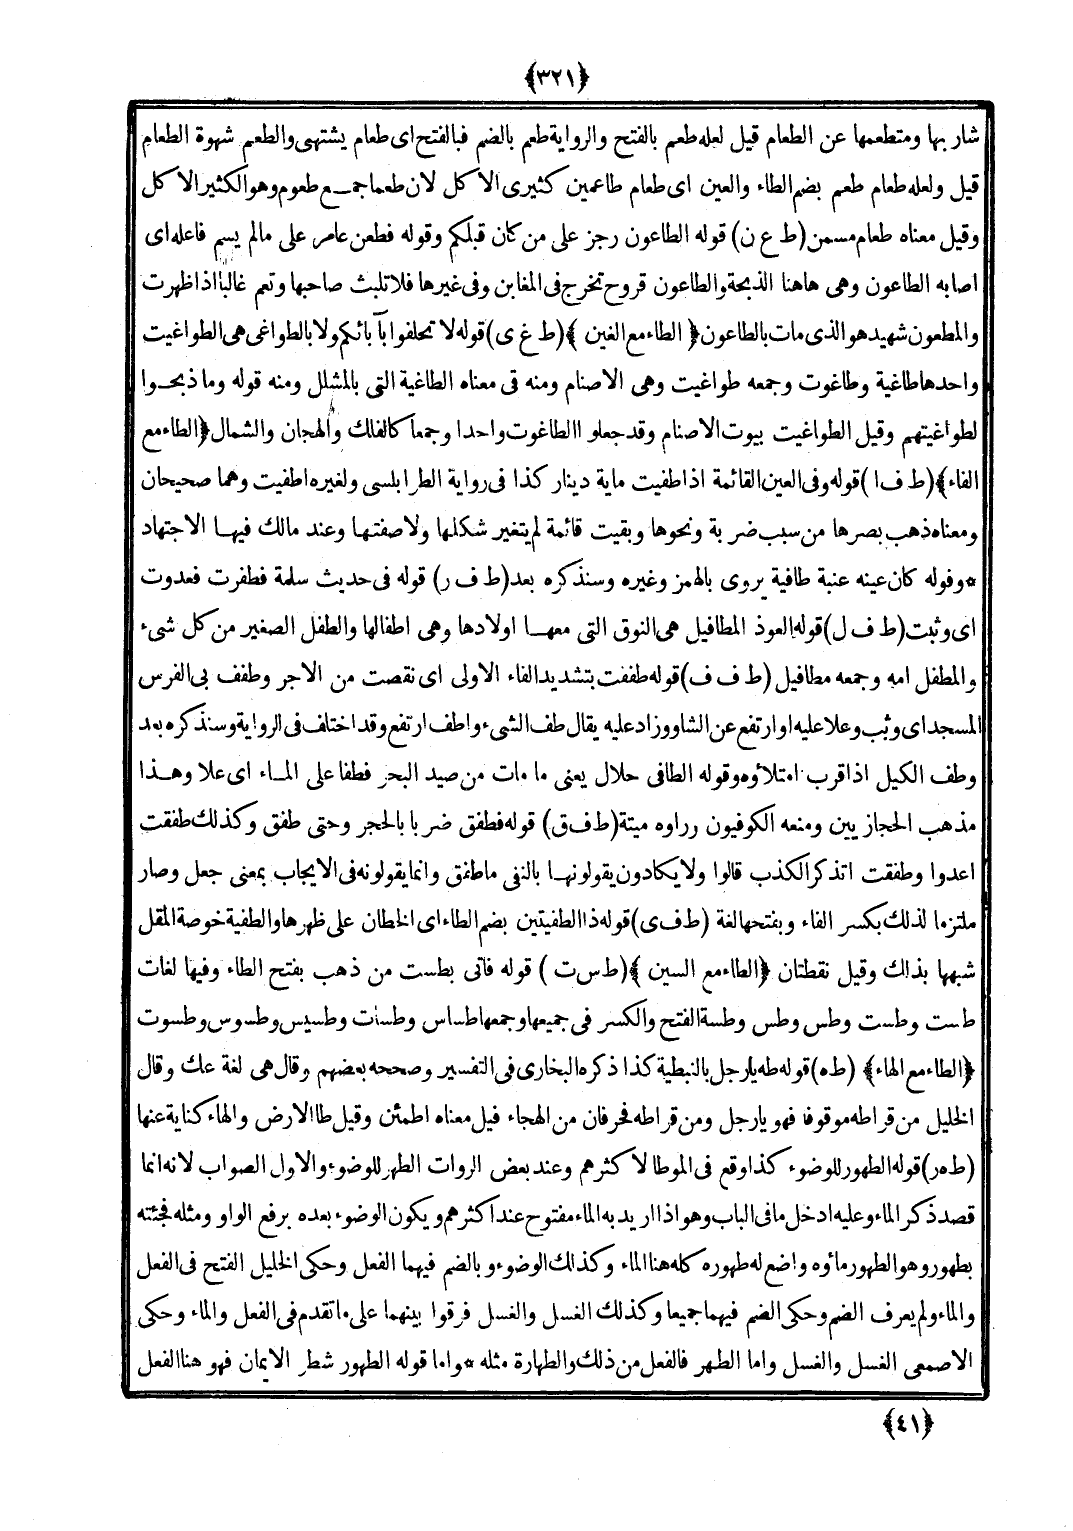 ﴿٣٢١﴾
شاربها ومتطعمها عن الطعام قيل لعله طعم بالفتح والرواية طعم بالضم فبالفتح اى طعام يشتهى والطعم شهوة الطعام
قيل ولعله طعام طعم بضم الطاء والعين اى طعام طاعمين كثيرى الاكل لان طعما جمع طعوم وهو الكثير الاكل
وقيل معناه طعام مسمن (ط ع ن) قوله الطاعون رجز على من كان قبلكم وقوله فطعن عامر على مالم يسم فاعله اى
اصابه الطاعون وهى هاهنا الذبحة والطاعون قروح تخرج فى المغابن وفى غيرها فلا تلبث صاحبها وتعم غالبا اذا ظهرت
والمطعون شهيد هو الذى مات بالطاعون ﴿ الطاء مع الغين ﴾ (ط غ ى) قوله لا تحلفوا بآبائكم ولا بالطواغى هى الطواغيت
واحدها طاغية وطاغوت وجمعه طواغيت وهى الاصنام ومنه فى معناه الطاغية التى بالمشلل ومنه قوله وما ذبحوا
لطواغيتهم وقيل الطواغيت بيوت الاصنام وقد جعلوا الطاغوت واحدا وجمعا كالفلك والهجان والشمال ﴿الطاء مع
الفاء﴾ (ط ف ا) قوله وفى العين القائمة اذا طفيت ماية دينار كذا فى رواية الطرابلسى ولغيره اطفيت وهما صحيحان
ومعناه ذهب بصرها من سبب ضربة ونحوها وبقيت قائمة لم يتغير شكلها ولا صفتها وعند مالك فيها الاجتهاد
* وقوله كان عينه عنبة طافية يروى بالهمز وغيره وسنذكره بعد (ط ف ر) قوله فى حديث سلمة فطفرت فعدوت
اى وثبت (ط ف ل) قوله العوذ المطافيل هى النوق التى معها اولادها وهى اطفالها والطفل الصغير من كل شىء
والمطفل امه وجمعه مطافيل (ط ف ف) قوله طففت بتشديد الفاء الاولى اى نقصت من الاجر وطفف بى الفرس
المسجد اى وثب وعلا عليه او ارتفع عن الشاو وزاد عليه يقال طف الشىء واطف ارتفع وقد اختلف فى الرواية وسنذكره بعد
وطف الكيل اذا قرب امتلاؤه وقوله الطافى حلال يعنى ما مات من صيد البحر فطفا على الماء اى علا وهذا
مذهب الحجازيين ومنعه الكوفيون رراوه ميتة (ط ف ق) قوله فطفق ضربا بالحجر وحتى طفق وكذلك طفقت
اعدوا وطفقت اتذكر الكذب قالوا ولا يكادون يقولونها بالنفى ما طفق وانما يقولونه فى الايجاب بمعنى جعل وصار
ملتزما لذلك بكسر الفاء وبفتحها لغة (ط ف ى) قوله ذا الطفيتين بضم الطاء اى الخطان على ظهرها والطفية خوصة المقل
شبهها بذلك وقيل نقطتان ﴿الطاء مع السين ﴾ (ط س ت ) قوله فاتى بطست من ذهب بفتح الطاء وفيها لغات
طست وطست وطس وطس وطسة الفتح والكسر فى جميعها وجمعها طساس وطسات وطسيس وطسوس وطسوت
﴿الطاء مع الهاء﴾ (ط ه) قوله طه يارجل بالنبطية كذا ذكره البخارى فى التفسير وصححه بعضهم وقال هى لغة عك وقال
الخليل من قراطه موقوفا فهو يارجل ومن قراطه فحرفان من الهجاء قيل معناه اطمئن وقيل طا الارض والهاء كناية عنها
(ط ه ر) قوله الطهور للوضوء كذا وقع فى الموطا لاكثرهم وعند بعض الروات الطهر للوضوء والاول الصواب لانه انما
قصد ذكر الماء وعليه ادخل ما فى الباب وهو اذا اريد به الماء مفتوح عند اكثرهم ويكون الوضوء بعده برفع الواو ومثله فجئته
بطهور وهو الطهور مأوه واضع له طهوره كله هنا الماء وكذلك الوضوء وبالضم فيهما الفعل وحكى الخليل الفتح فى الفعل
والماء ولم يعرف الضم وحكى الضم فيهما جميعا وكذلك الغسل والغسل فرقوا بينهما على ما تقدم فى الفعل والماء وحكى
الاصمعى الغسل والغسل واما الطهر فالفعل من ذلك والطهارة مثله * واما قوله الطهور شطر الايمان فهو هنا الفعل
﴿٤١﴾